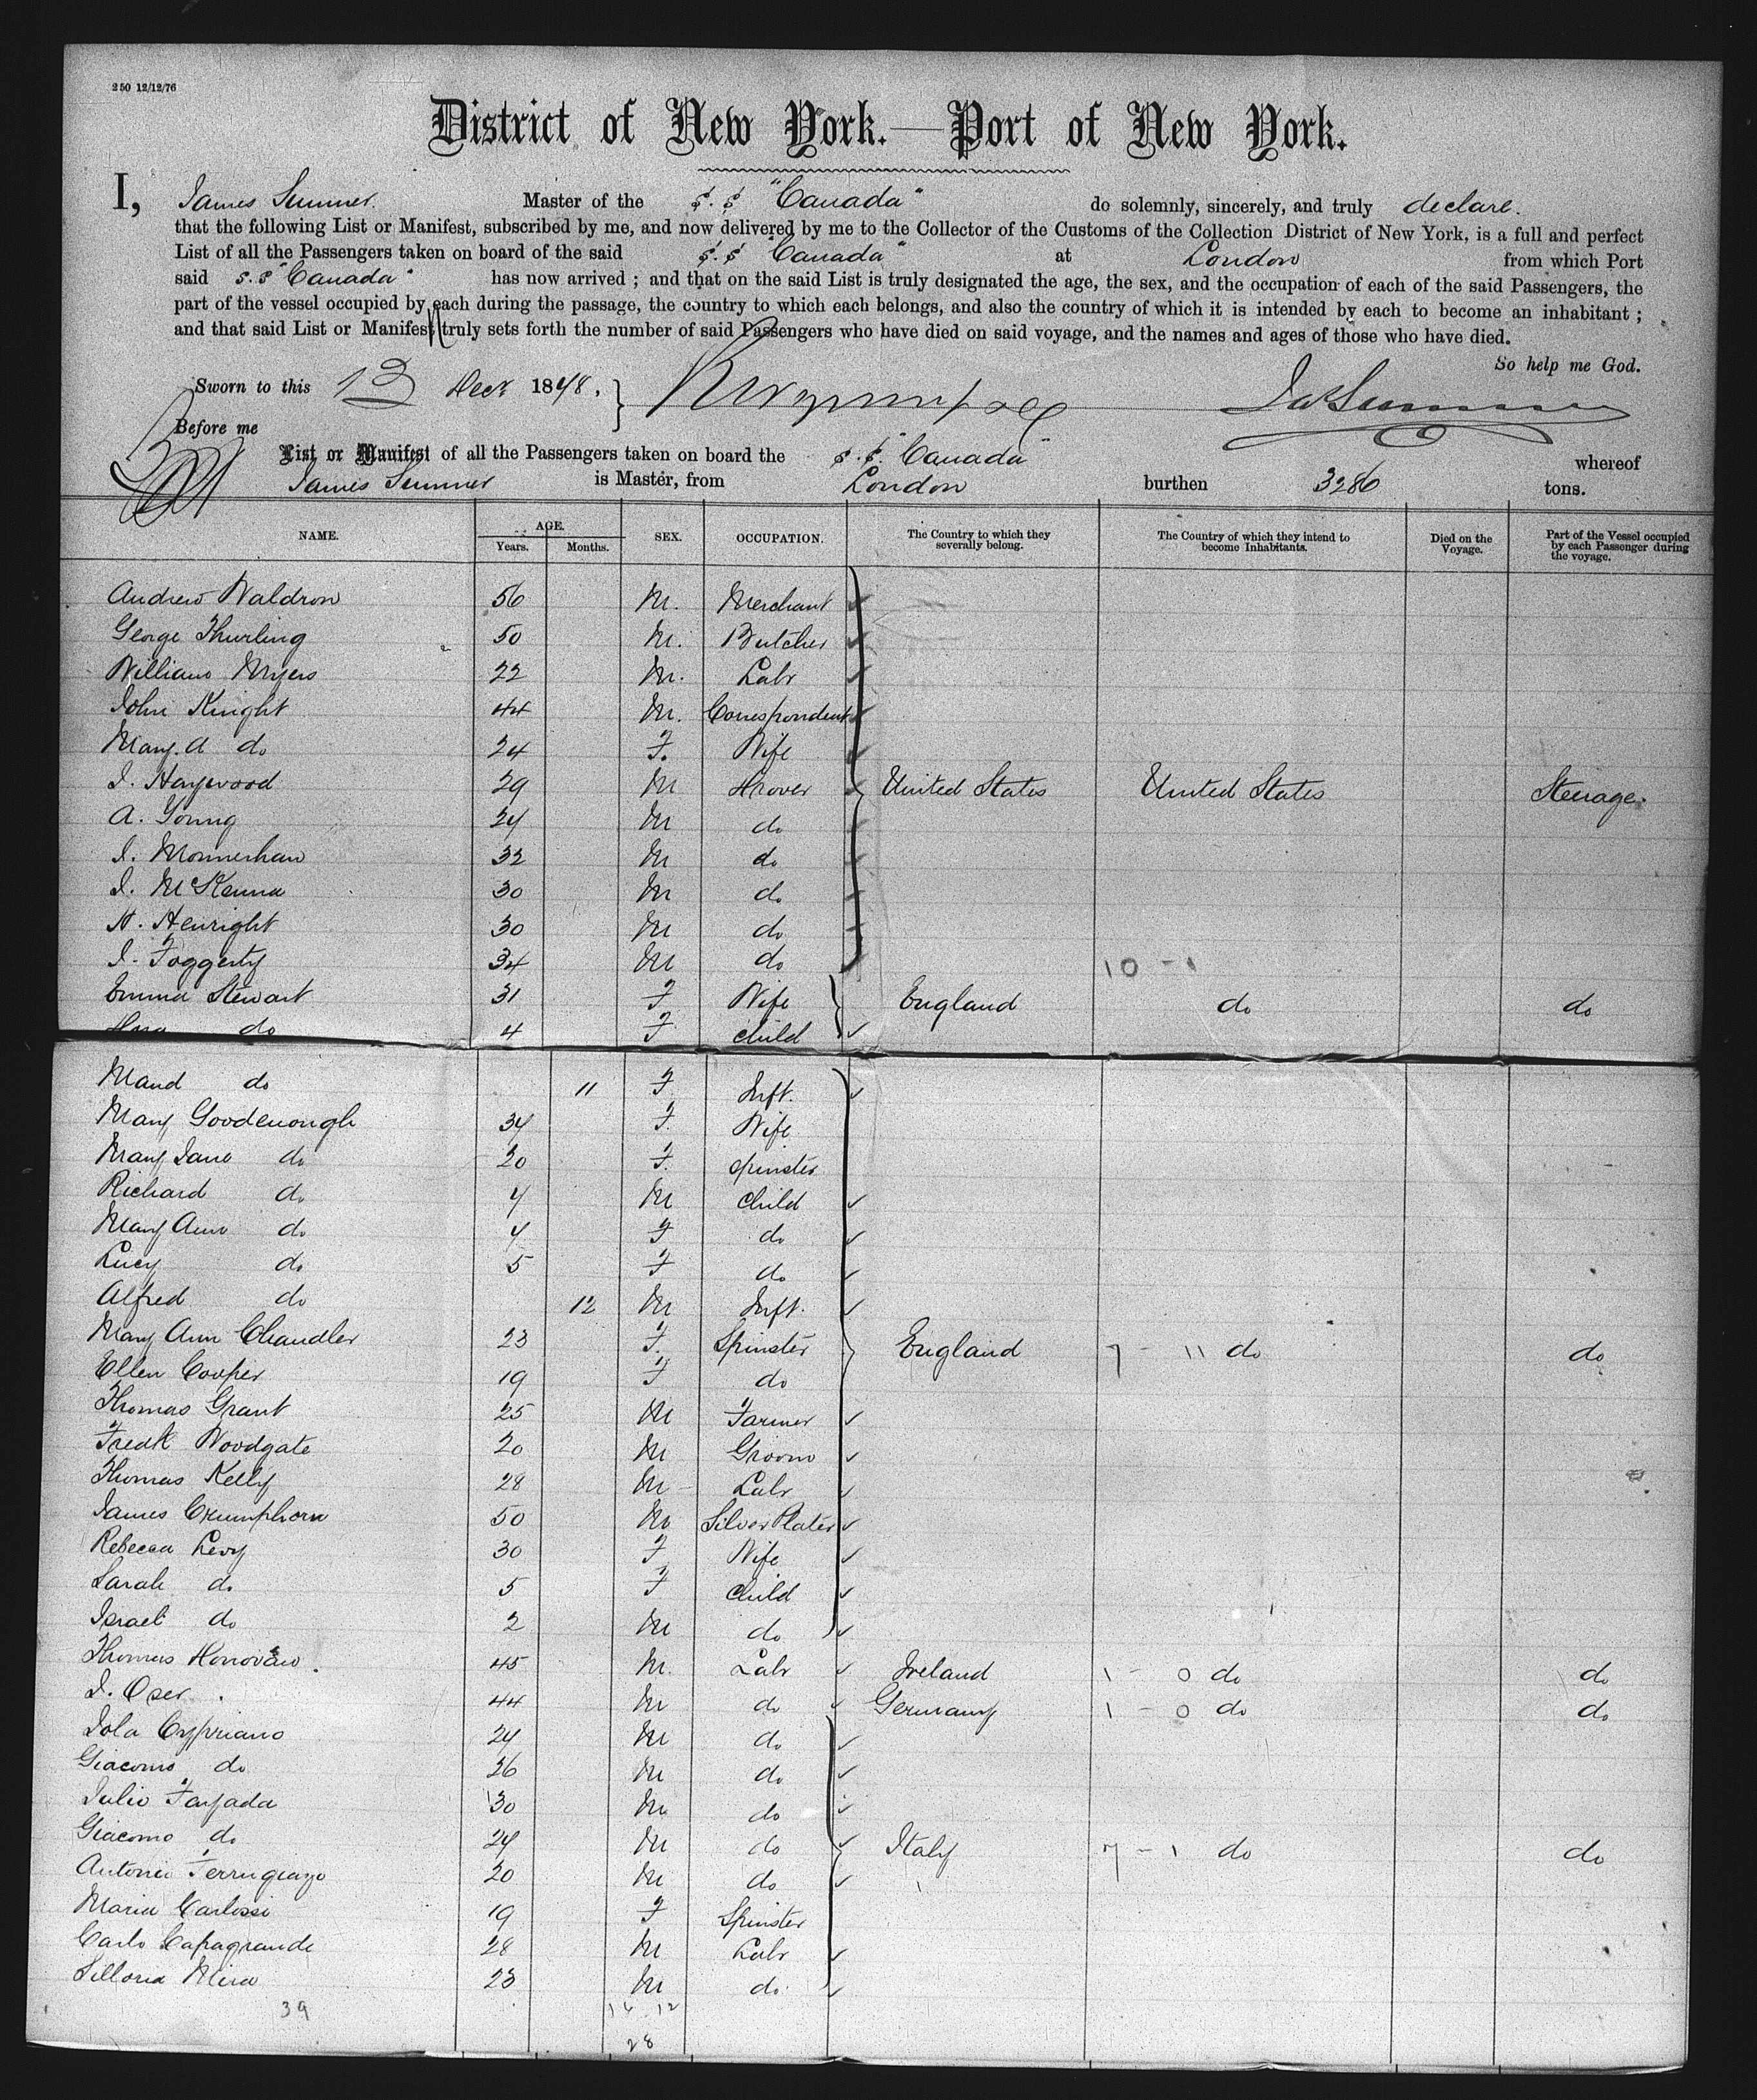 250 12/12/76
District of New York.—Port of New York.
I, James Sumner. Master of the S.S "Canada" do solemnly, sincerely, and truly declare.
that the following List or Manifest, subscribed by me, and now delivered by me to the Collector of the Customs of the Collection District of New York, is a full and perfect
List of all the Passengers taken on board of the said S.S "Canada" at London from which Port
said S.S "Canada" has now arrived ; and that on the said List is truly designated the age, the sex, and the occupation of each of the said Passengers, the
part of the vessel occupied by each during the passage, the country to which each belongs, and also the country of which it is intended by each to become an inhabitant ;
and that said List or Manifest truly sets forth the number of said Passengers who have died on said voyage, and the names and ages of those who have died.
So help me God.
Sworn to this 12 Decr 1878. Jas Sumner
Before me
List or Manifest of all the Passengers taken on board the S.S. "Canada" whereof
James Sumner is Master, from London burthen 3286 tons.
NAME. AGE. Years. Months. SEX. OCCUPATION. The Country to which they severally belong. The Country of which they intend to become Inhabitants. Died on the Voyage. Part of the Vessel occupied by each Passenger during the voyage.
Andrew Waldron 56 M. Merchant
George Thurling 50 M. Butcher
William Myers 22 M. Labr
John Knight 44 M. Correspondent
Mary. A do 24 F. Wife
J. Haywood 29 M Drover United States United States Steerage.
A. Young 24 M do
J. 32 M do
J. McKenna 30 M do
H. Henright 30 M do
J. Foggerty 34 M do 10 - 1
Emma Stewart 31 F Wife England do do
do 4 F child
Maud do 11 F Inft.
Mary Goodenough 34 F. Wife
Mary Jane do 20 F. spinster
Richard do 4 M child
Mary Ann do 4 F do
Lucy do 5 F do
Alfred do 12 M Inft.
Mary Ann Chandler 23 F. Spinster England 7 - 11 do do
Ellen Cooper 19 F do
Thomas Grant 25 M Farmer
Fredk Woodgate 20 M Groom
Thomas Kelly 28 M Labr
James Crumphorn 50 M Silver Plater
Rebecca Levy 30 F Wife
Sarah do 5 F child
Israel do 2 M do
Thomas Honovan. 45 M. Labr Ireland 1 - 0 do do
J. Oser. 44 M do Germany 1 - 0 do do
Iola Cypriano 24 M do
Giacomo do 26 M do
Julio Farfada 30 M do
Giacomo do 24 M do Italy 7 - 1 do do
Antonio 20 M do
Maria Carlossi 19 F Spinster
Carlo Capagrande 28 M Labr
Mira 23 M do
39 16 12
28